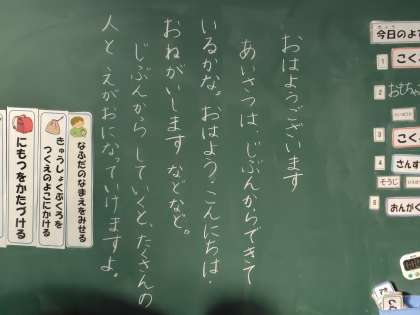 おはようございます
あいさつは、じぶんからできて
いるかな。おはよう・こんにちは・
おねがいします などなど。
じぶんから していくと、たくさんの
人と えがおになっていけますよ。
なふだのなまえをみせる
きゅうしょくぶくろを
つくえのよこにかける
にもつをかたづける
今日のよ
1 こく
2 おむちゃ
3 こく
4 さんす
そうじ
5 おんがく